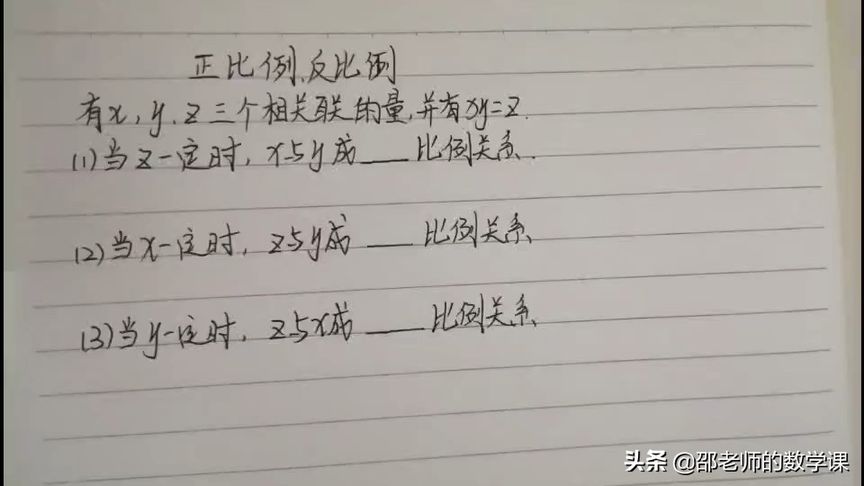 正比例、反比例
有x，y、z三个相关联的量，并有xy=z.
(1)当z一定时，x与y成___比例关系.
(2)当x一定时，z与y成___比例关系、
(3)当y一定时，z与x成___比例关系、
头条 @邵老师的数学课